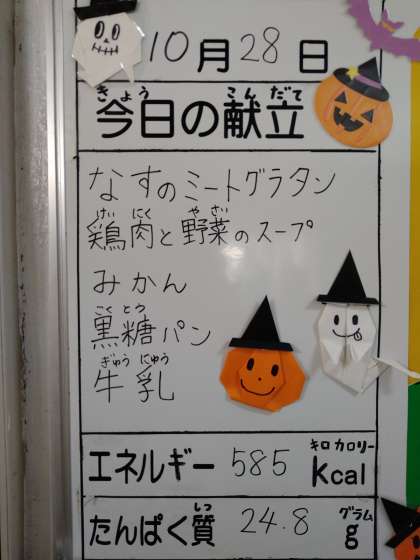 10月28日
きょう こんだて
今日の献立
なすのミートグラタン
けい にく や さい
鶏肉と野菜のスープ
みかん
こく とう
黒糖パン
ぎゅう にゅう
牛乳
キロカロリー
エネルギー 585 kcal
しつ グラム
たんぱく質 24.8 g